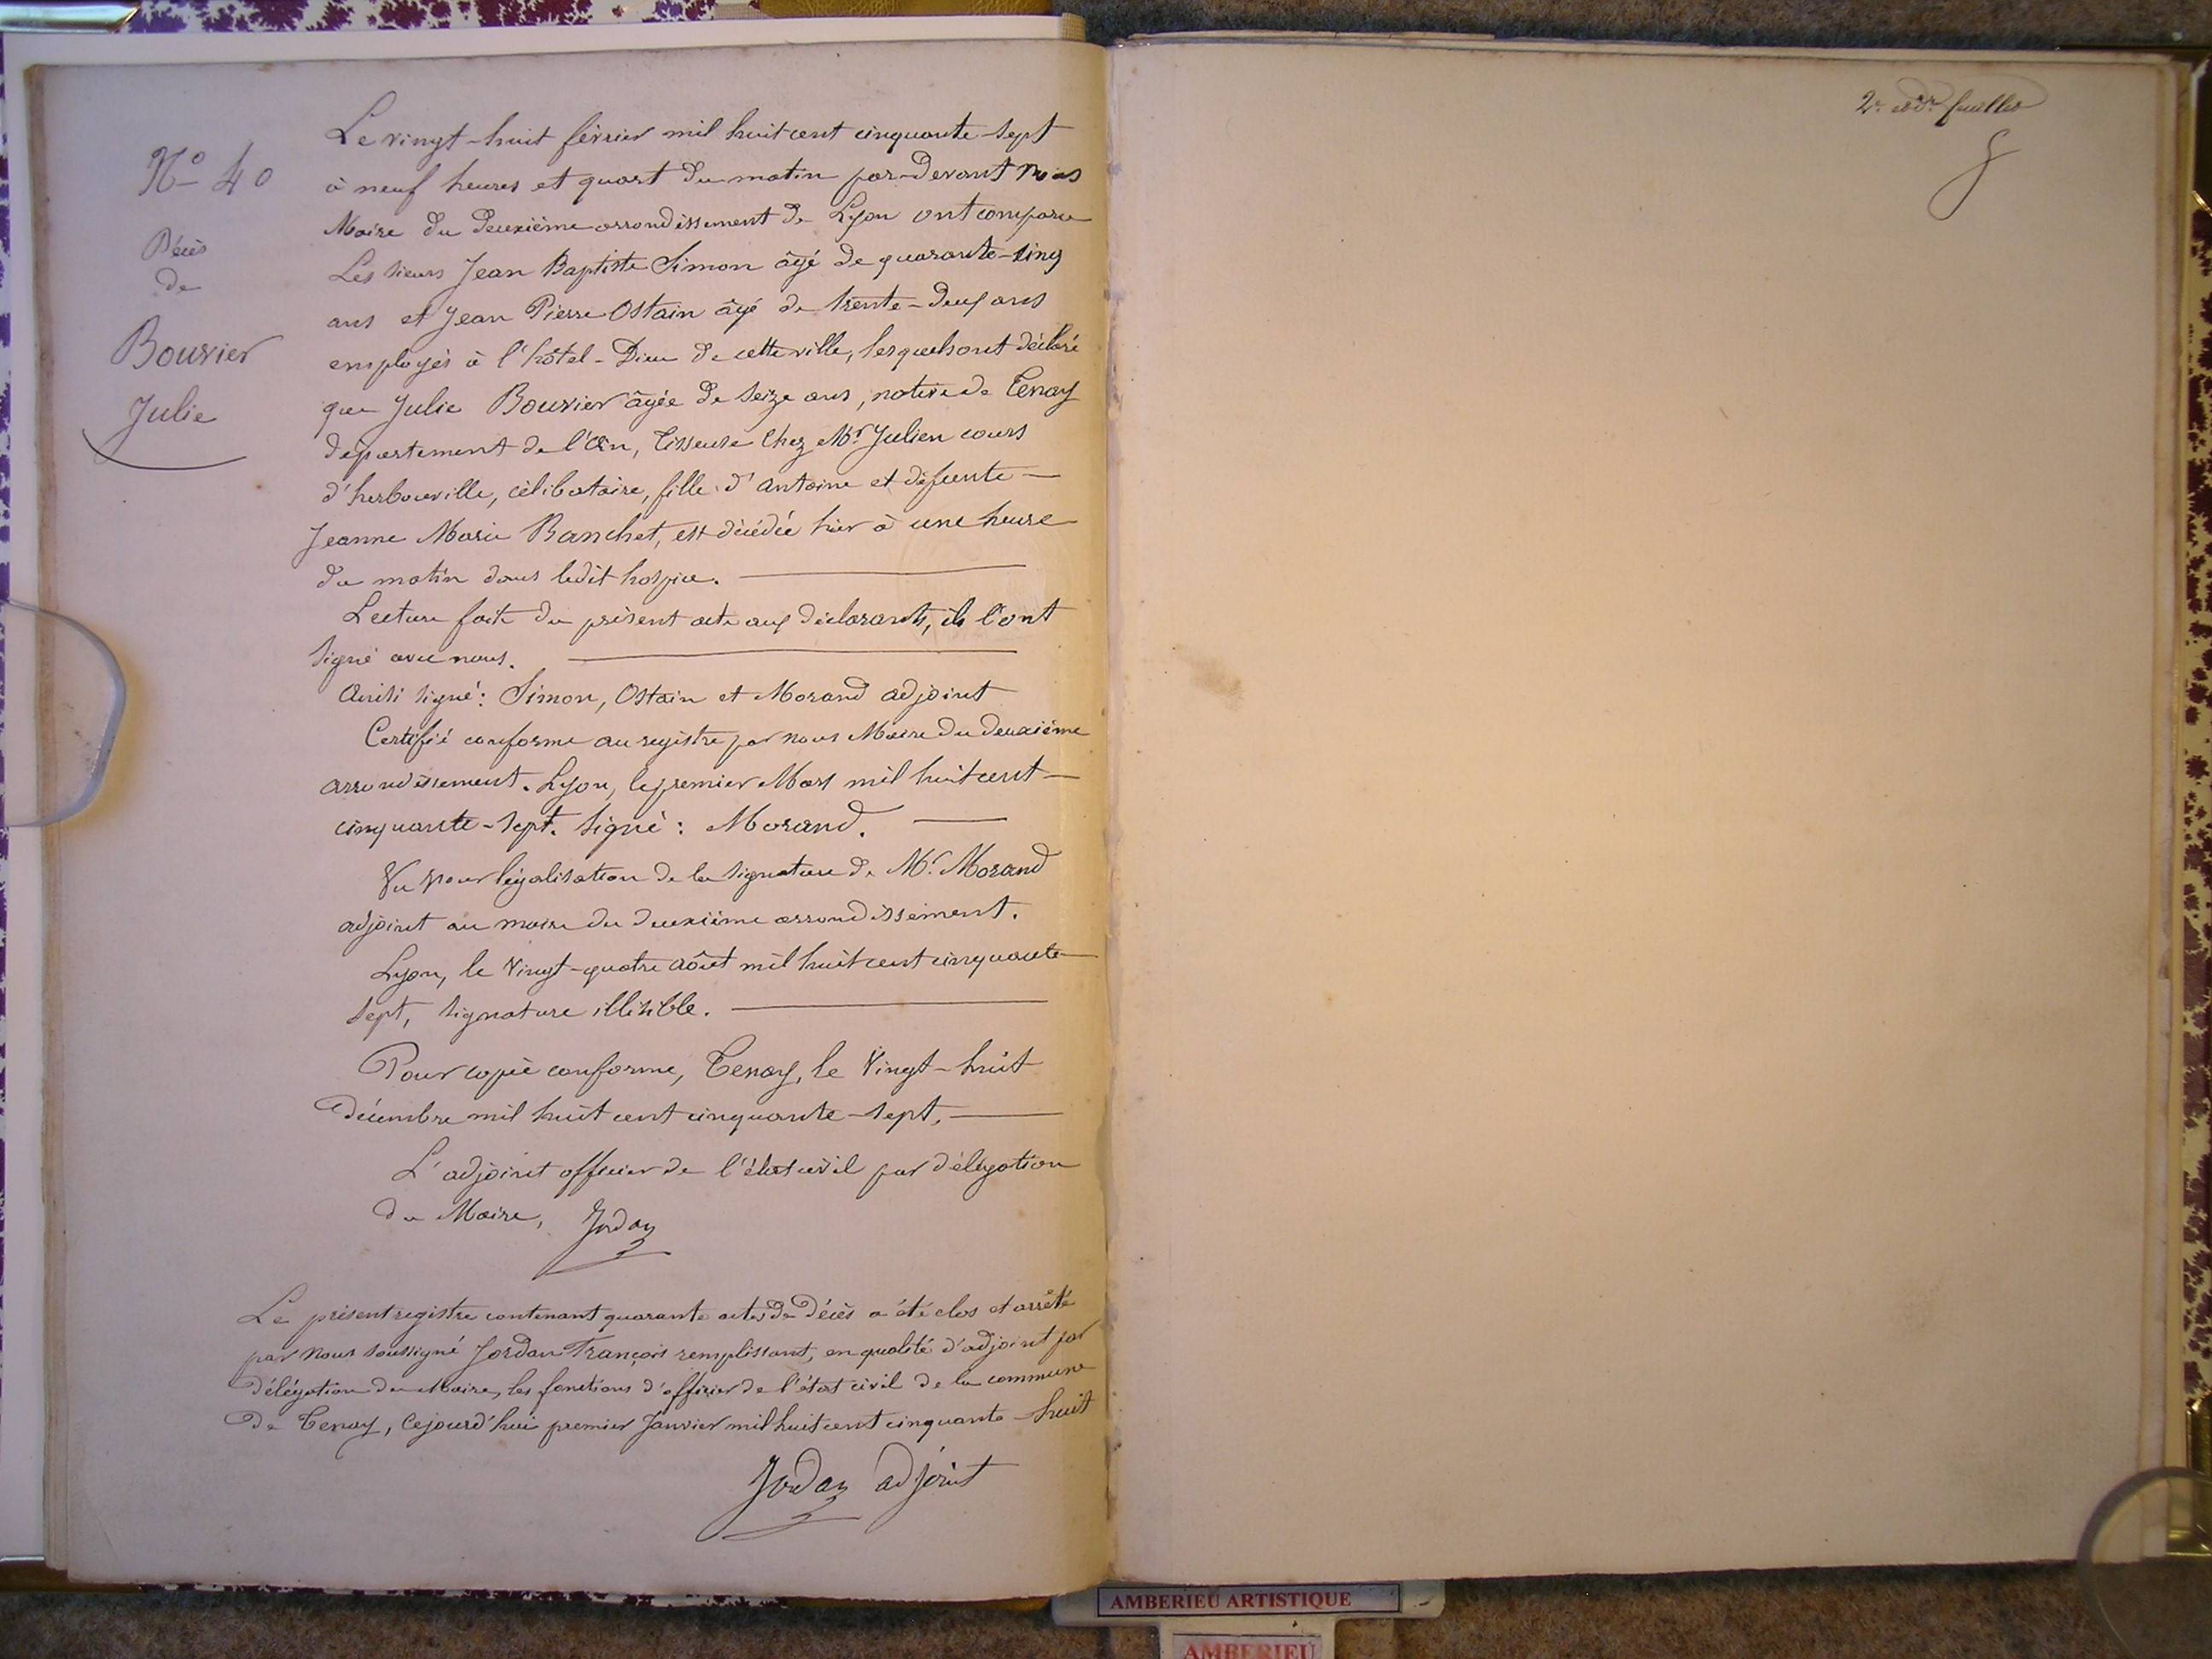 N° 40
Décès
de
Bouvier
Julie
Le vingt-huit février mil huit cent cinquante-sept
à neuf heures et quart du matin par-devant nous
Maire du deuxième arrondissement de Lyon ont comparu
Les sieurs Jean Baptiste Simon âgé de quarante-cinq
ans et Jean Pierre Ostain âgé de trente-deux ans
employés à l'hôtel-Dieu de cette ville, lesquels ont déclaré
que Julie Bouvier âgée de seize ans, native de Tenay
département de l'Ain, tisseuse chez Mr Julien cours
d'herbouville, célibataire, fille d'Antoine et défunte —
Jeanne Marie Banchet, est décédée hier à une heure
du matin dans ledit hospice.
Lecture faite du présent acte aux déclarants, ils l'ont
signé avec nous.
Ainsi signé: Simon, Ostain et Morand adjoint
Certifié conforme au registre par nous Maire du deuxième
arrondissement. Lyon, le premier Mars mil huit cent —
cinquante-sept. signé: Morand. —
Vu pour légalisation de la signature de Mr Morand
adjoint au maire du deuxième arrondissement.
Lyon, le vingt-quatre août mil huit cent cinquante
sept, signature illisible.
Pour copie conforme, Tenay, le vingt-huit
décembre mil huit cent cinquante-sept, —
L'adjoint officier de l'état civil par délégation
du Maire, Jordan
Le présent registre contenant quarante actes de décès a été clos et arrêté
par nous soussigné Jordan François remplissant, en qualité d'adjoint par
délégation du Maire, les fonctions d'officier de l'état civil de la commune
de Tenay, cejourd'hui premier Janvier mil huit cent cinquante-huit
Jordan adjoint
2e feuillet
AMBERIEU ARTISTIQUE
AMBERIEU